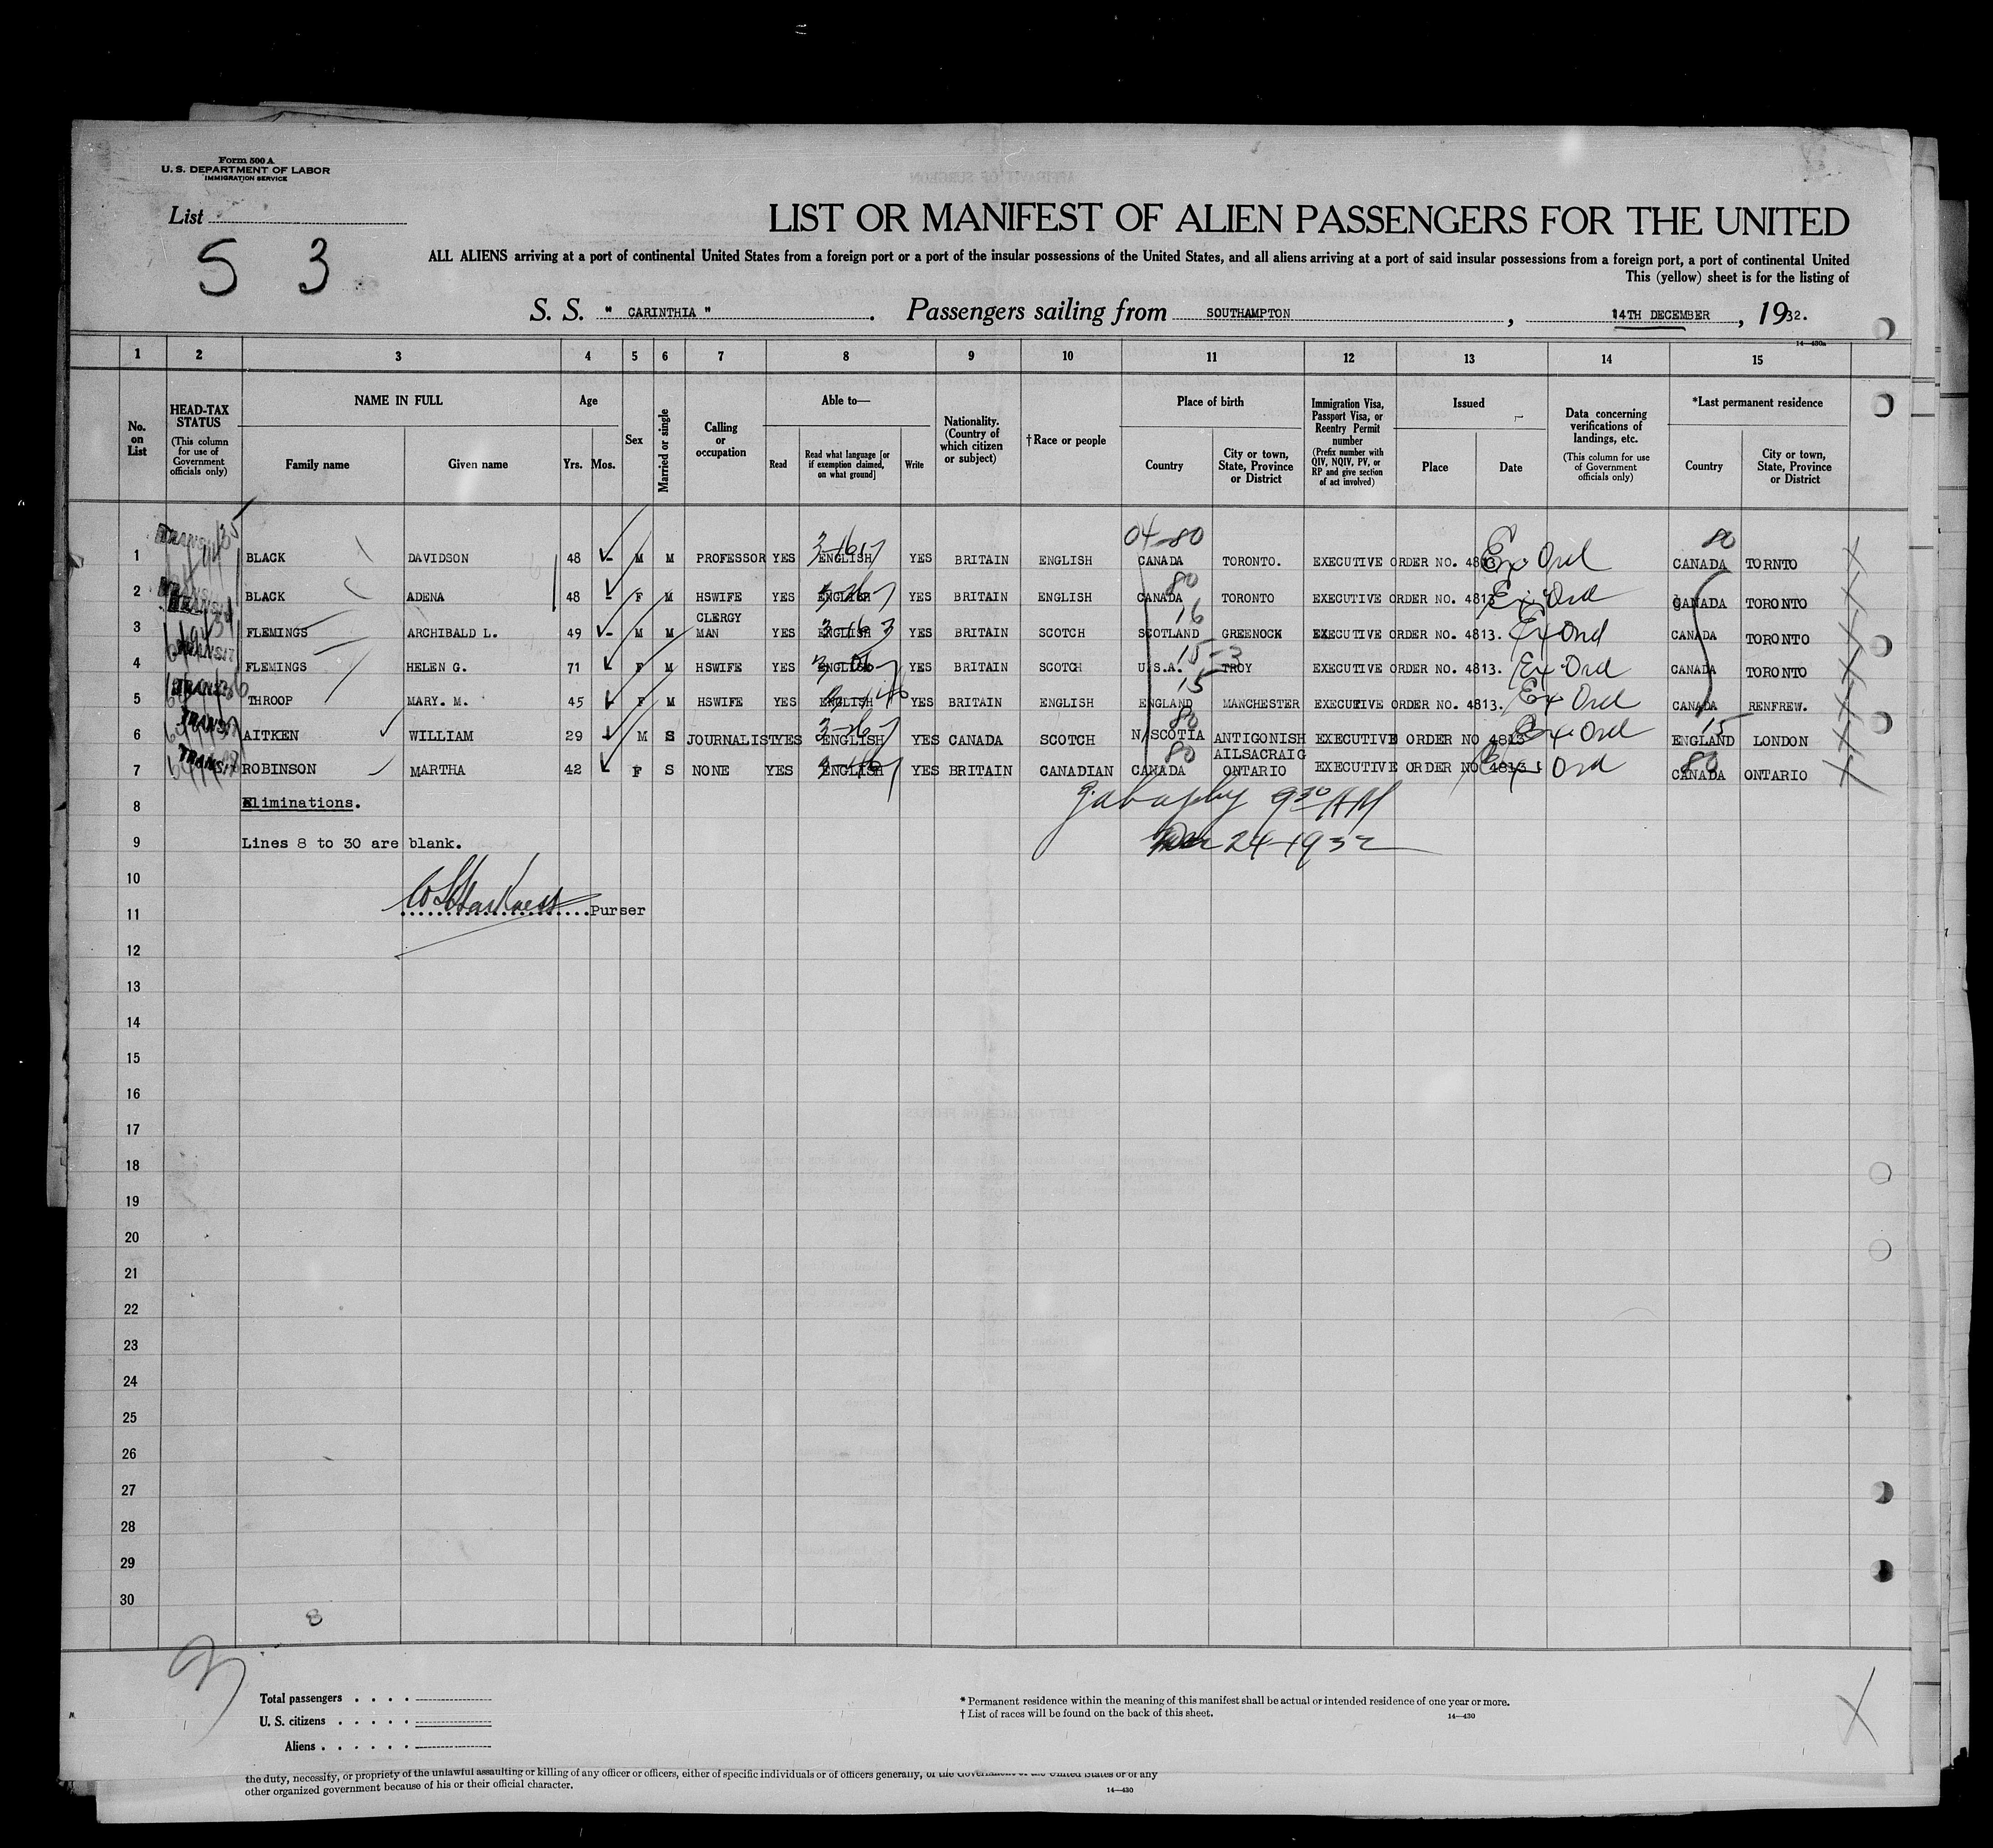 Form 500 A
U. S. DEPARTMENT OF LABOR
IMMIGRATION SERVICE
List
S 3
LIST OR MANIFEST OF ALIEN PASSENGERS FOR THE UNITED
ALL ALIENS arriving at a port of continental United States from a foreign port or a port of the insular possessions of the United States, and all aliens arriving at a port of said insular possessions from a foreign port, a port of continental United
This (yellow) sheet is for the listing of
S. S. " CARINTHIA ". Passengers sailing from SOUTHAMPTON, 14TH DECEMBER, 1932.
14—430a
1 2 3 4 5 6 7 8 9 10 11 12 13 14 15
No. on List
HEAD-TAX STATUS (This column for use of Government officials only)
NAME IN FULL Family name Given name
Age Yrs. Mos.
Sex
Married or single
Calling or occupation
Able to— Read Read what language [or if exemption claimed, on what ground] Write
Nationality. (Country of which citizen or subject)
†Race or people
Place of birth Country City or town, State, Province or District
Immigration Visa, Passport Visa, or Reentry Permit number (Prefix number with QIV, NQIV, PV, or RP and give section of act involved)
Issued Place Date
Data concerning verifications of landings, etc. (This column for use of Government officials only)
*Last permanent residence Country City or town, State, Province or District
04-80 80
1 TRANSIT BLACK DAVIDSON 48 - M M PROFESSOR YES ENGLISH YES BRITAIN ENGLISH CANADA TORONTO. EXECUTIVE ORDER NO. 4813 Ex Ord CANADA TORNTO
80
2 TRANSIT BLACK ADENA 48 F M HSWIFE YES ENGLISH YES BRITAIN ENGLISH CANADA TORONTO EXECUTIVE ORDER NO. 4813 Ex Ord CANADA TORONTO
16
3 TRANSIT FLEMINGS ARCHIBALD L. 49 - M M CLERGY MAN YES ENGLISH YES BRITAIN SCOTCH SCOTLAND GREENOCK EXECUTIVE ORDER NO. 4813. Ex Ord CANADA TORONTO
15-3
4 TRANSIT FLEMINGS HELEN G. 71 F M HSWIFE YES ENGLISH YES BRITAIN SCOTCH U.S.A. TROY EXECUTIVE ORDER NO. 4813. Ex Ord CANADA TORONTO
15
5 TRANSIT THROOP MARY. M. 45 F M HSWIFE YES ENGLISH YES BRITAIN ENGLISH ENGLAND MANCHESTER EXECUTIVE ORDER NO. 4813. Ex Ord CANADA RENFREW.
80 15
6 TRANSIT AITKEN WILLIAM 29 M S JOURNALIST YES ENGLISH YES CANADA SCOTCH N/SCOTIA ANTIGONISH EXECUTIVE ORDER NO 4813 Ex Ord ENGLAND LONDON
80 80
7 TRANSIT ROBINSON MARTHA 42 F S NONE YES ENGLISH YES BRITAIN CANADIAN CANADA AILSACRAIG ONTARIO EXECUTIVE ORDER NO 4813 Ex Ord CANADA ONTARIO
8 Eliminations. 9 30 AM
9 Lines 8 to 30 are blank. Dec 24-1932
10
11 Purser
12
13
14
15
16
17
18
19
20
21
22
23
24
25
26
27
28
29
30
8
Total passengers
U. S. citizens
Aliens
* Permanent residence within the meaning of this manifest shall be actual or intended residence of one year or more.
† List of races will be found on the back of this sheet.
14—430
the duty, necessity, or propriety of the unlawful assaulting or killing of any officer or officers, either of specific individuals or of officers generally, of the Government of the United States or of any
other organized government because of his or their official character.
14—430